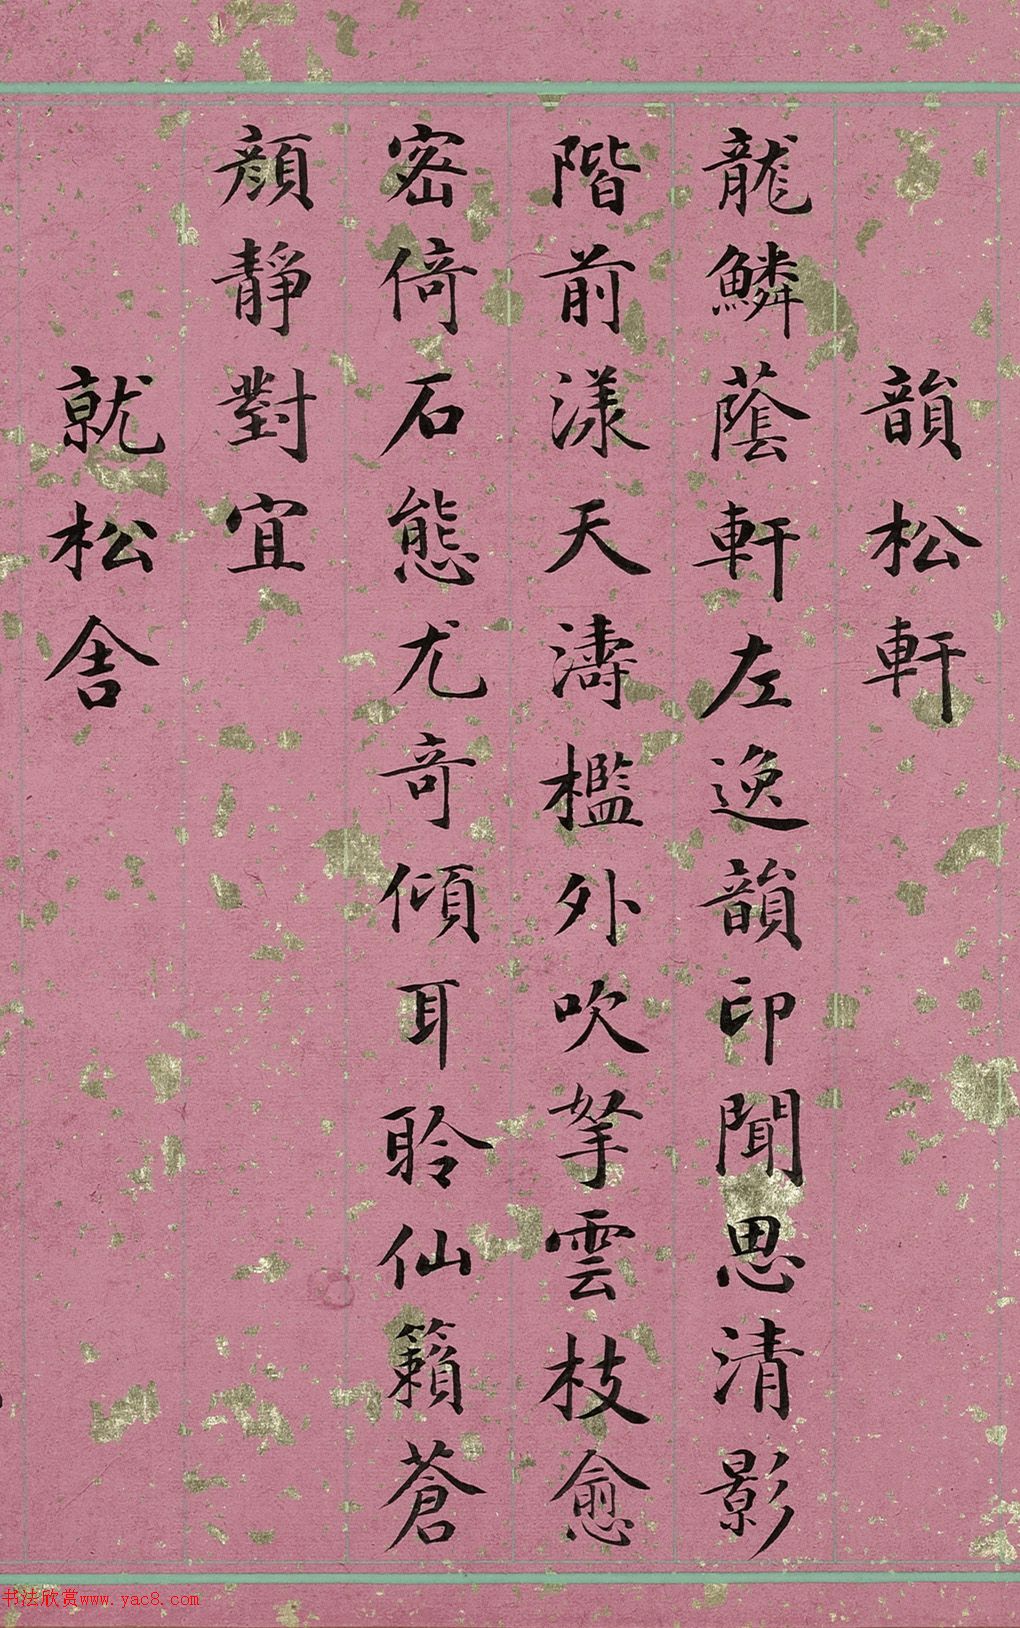 韻松軒
龍鱗蔭軒左逸韻印聞思清影
階前漾天濤檻外吹拏雲枝愈
密倚石態尤奇傾耳聆仙籟蒼
顏靜對宜
就松舍
书法欣赏www.yac8.com